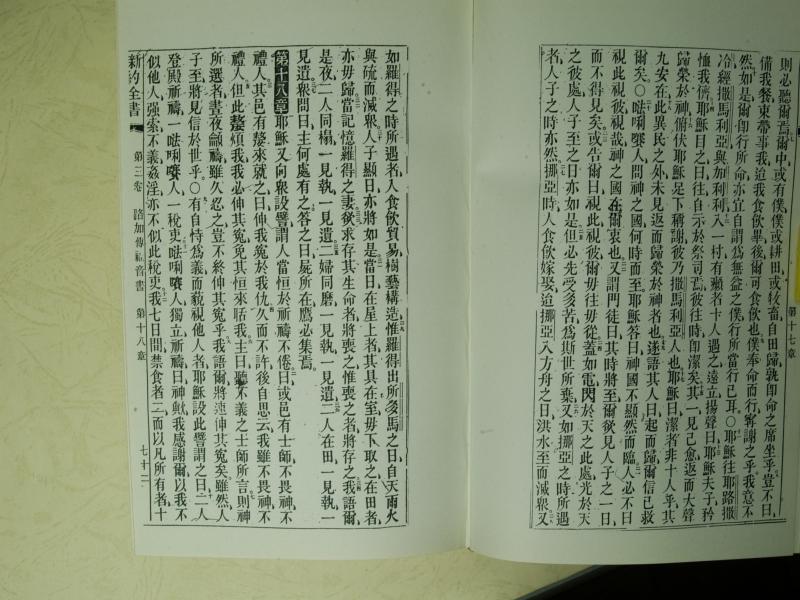 第十七章
則必聽爾焉爾中或有僕僕或耕田或牧畜自田歸孰卽命之席坐乎豈不曰
備我餐束帶事我迨我食飲畢後爾可食飲也僕奉命而行寧謝之乎我意不
然如是爾卽行所命亦宜自謂爲無益之僕行所當行已耳○耶穌往耶路撒
冷經撒馬利亞與加利利入一村有癩者十人遇之遠立揚聲曰耶穌夫子矜
恤我儕耶穌目之曰往自示於祭司焉彼往時卽潔矣其一見己愈返而大聲
歸榮於神俯伏耶穌足下稱謝彼乃撒馬利亞人也耶穌曰潔者非十人乎其
九安在此異民之外未見返而歸榮於神者也遂語其人曰起而歸爾信已救
爾矣○唎人問神之國何時而至耶穌答曰神國不顯然而臨人必不曰
視此視彼視哉神之國在爾衷也又謂門徒曰其時將至爾欲見人子之一日
而不得見矣或告爾曰視此視彼爾毋往毋從蓋如電閃於天之此處光於天
之彼處人子至之日亦如是但必先受多苦爲斯世所棄又如挪亞之時所遇
者人子之時亦然挪亞時人食飲嫁娶迨挪亞入方舟之日洪水至而滅衆又
如羅得之時所遇者人食飲貿易樹藝構造惟羅得出所多馬之日自天雨火
與硫而滅衆人子顯日亦將如是當日在屋上者其具在室毋下取之在田者
亦毋歸當記憶羅得之妻欲求存其生命者將喪之惟喪之者將存之我語爾
是夜二人同榻一見執一見遺二婦同磨一見執一見遺二人在田一見執一
見遺衆問曰主何處有之答曰屍所在鷹必集焉
第十八章耶穌又向衆設譬謂人當恒於祈禱不倦曰或邑有士師不畏神不
禮人其邑有嫠來就之曰伸我冤於我仇久而不許後自思云我雖不畏神不
禮人但此嫠煩我我必伸其冤免其恒來聒我主曰聽不義之士師所言則神
所選名晝夜籲禱雖久忍之豈不終伸其冤乎我語爾將速伸其冤矣雖然人
子至將見信於世乎○有自恃爲義而藐視他人者耶穌設此譬謂之曰二人
登殿祈禱一唎人一稅吏唎人獨立祈禱曰神歟我感謝爾以我不
似他人强索不義姦淫亦不似此稅吏我七日間禁食者二而以凡所有者十
新約全書 第三卷 路加傳福音書 第十八章 七十二